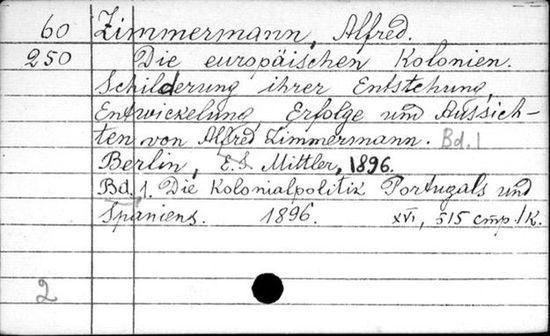 60 Zimmermann, Alfred.
250 Die europäischen Kolonien.
Schilderung ihrer Entstehung,
Entwickelung, Erfolge und Aussich-
ten von Alfred Zimmermann. Bd. 1
Berlin, E.S. Mittler, 1896.
Bd. 1. Die Kolonialpolitik Portugals und
Spaniens. 1896. XVI, 515 стр. 1 К.
2